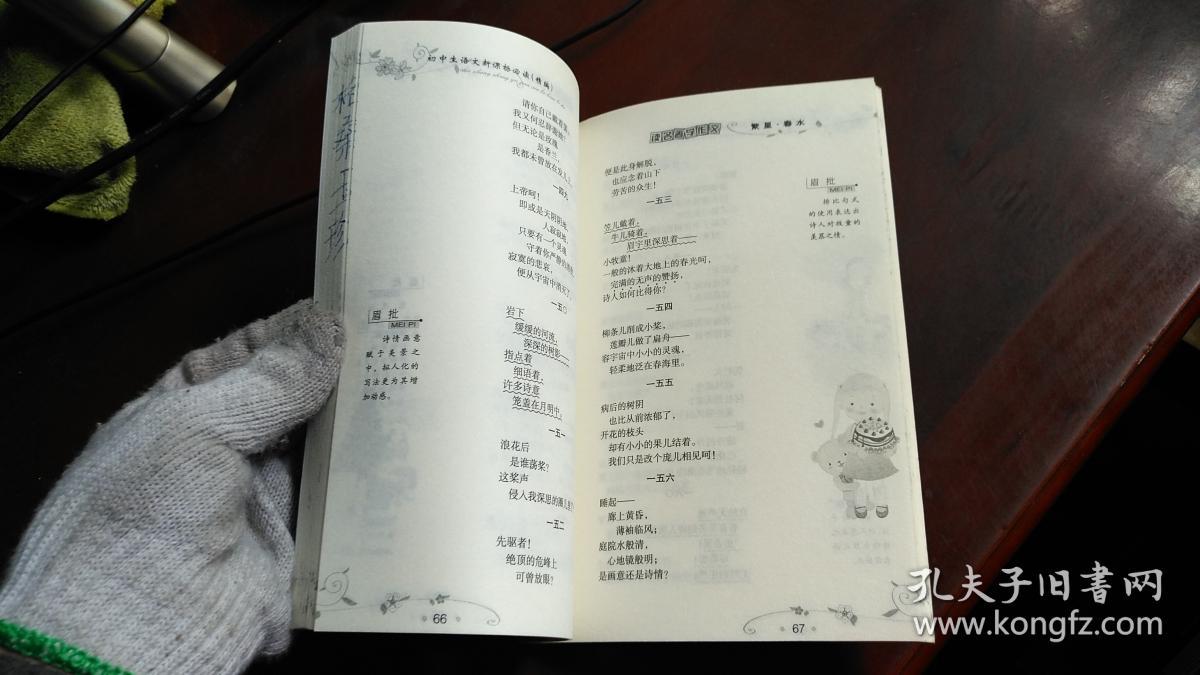 初中生语文新课标必读(精编)
请你自己戴着罢,
我又何忍辞谢她?
但无论是玫瑰
是香兰,
我都未曾放在发儿上
一四九
上帝呵!
即或是天阴阴地,
人寂寂地,
只要有一个灵魂
守着你严静的清夜,
寂寞的悲哀,
便从宇宙中消灭了。
一五〇
岩下
缓缓的河流,
深深的树影——
指点着
细语着,
许多诗意
笼盖在月明中。
一五一
浪花后
是谁荡桨?
这桨声
侵入我深思的圈儿里了
一五二
先驱者!
绝顶的危峰上
可曾放眼?
眉 批
MEI PI
诗情画意
赋于美景之
中,拟人化的
写法更为其增
加动感。
66
读名著学作文
繁星·春水
便是此身解脱,
也应念着山下
劳苦的众生!
一五三
笠儿戴着,
牛儿骑着,
眉宇里深思着——
小牧童!
一般的沐着大地上的春光呵,
完满的无声的赞扬,
诗人如何比得你?
一五四
柳条儿削成小桨,
莲瓣儿做了扁舟——
容宇宙中小小的灵魂,
轻柔地泛在春海里。
一五五
病后的树阴
也比从前浓郁了,
开花的枝头
却有小小的果儿结着。
我们只是改个庞儿相见呵!
一五六
睡起——
廊上黄昏,
薄袖临风;
庭院水般清,
心地镜般明;
是画意还是诗情?
眉 批
MEI PI
排比句式
的使用表达出
诗人对牧童的
羡慕之情。
67
孔夫子旧书网
www.kongfz.com